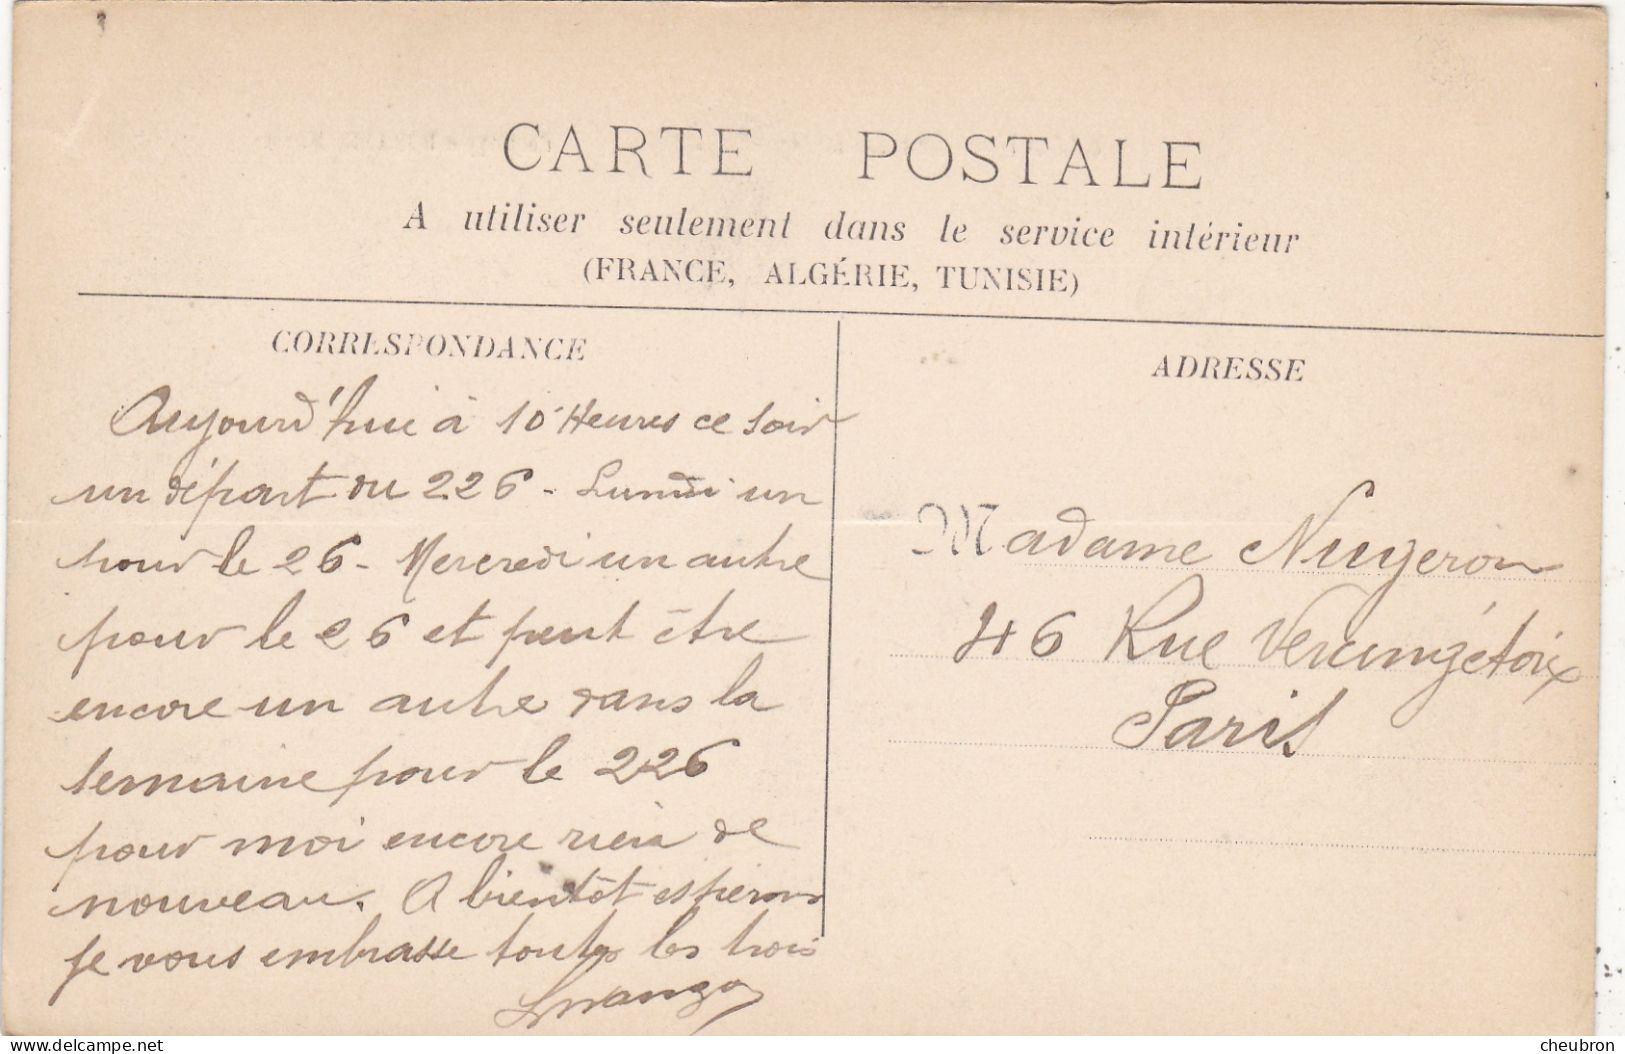 CARTE POSTALE
A utiliser seulement dans le service intérieur
(FRANCE, ALGÉRIE, TUNISIE)
CORRESPONDANCE
ADRESSE
Aujourd'hui à 10 Heures ce soir
un départ du 226 - Lundi un
pour le 26 - Mercredi un autre
pour le 26 et peut être
encore un autre dans la
semaine pour le 226
pour moi encore rien de
nouveau. A bientôt espérons
je vous embrasse toutes les trois
Madame Nugeron
46 Rue Vercingétorix
Paris
cheubron
delcampe.net